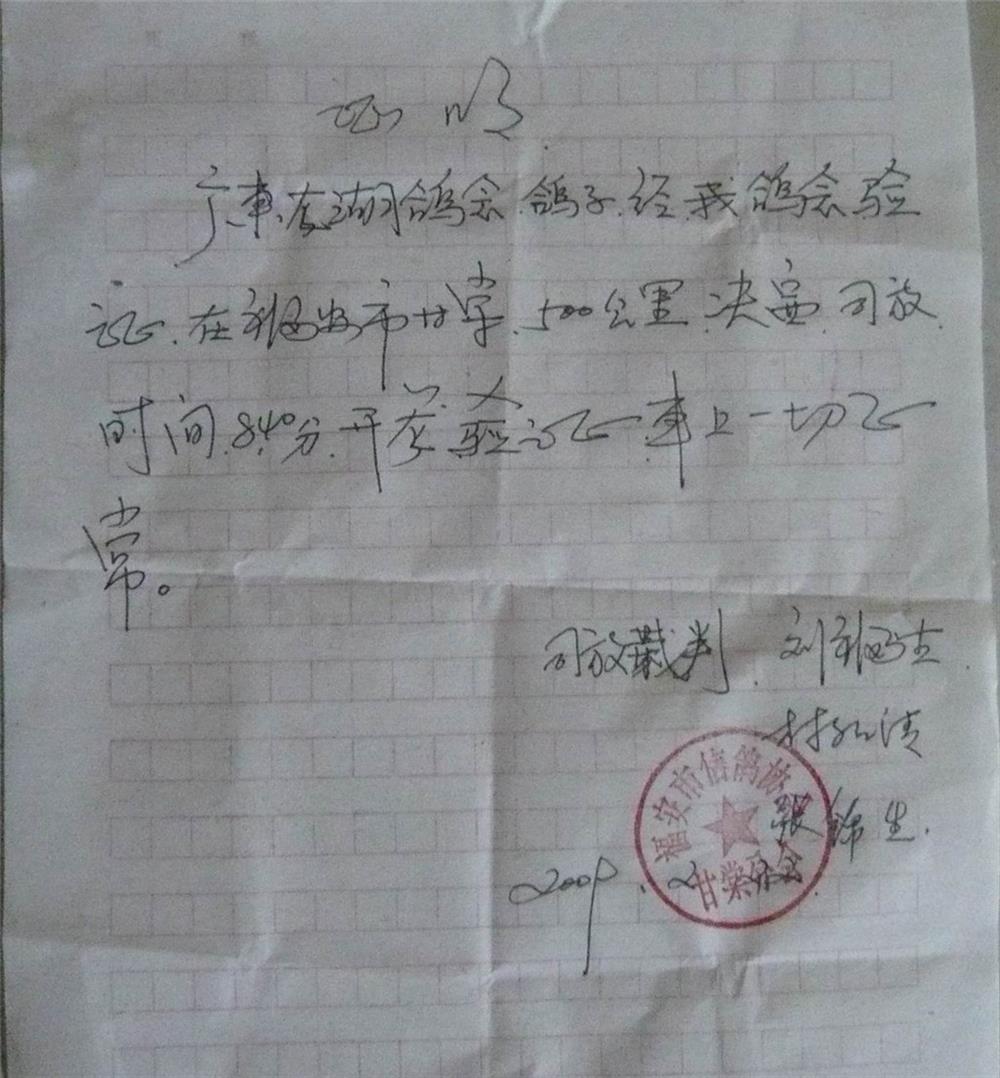 证明
广东 湖鸽会鸽子经我鸽会验
证.在福安市甘棠.500公里决赛.司放
时间.8.40分.开 验证.车上一切正
常。
司放裁判 刘福生
林 清
生.
福安市信鸽协会
甘棠分会
2009.2.